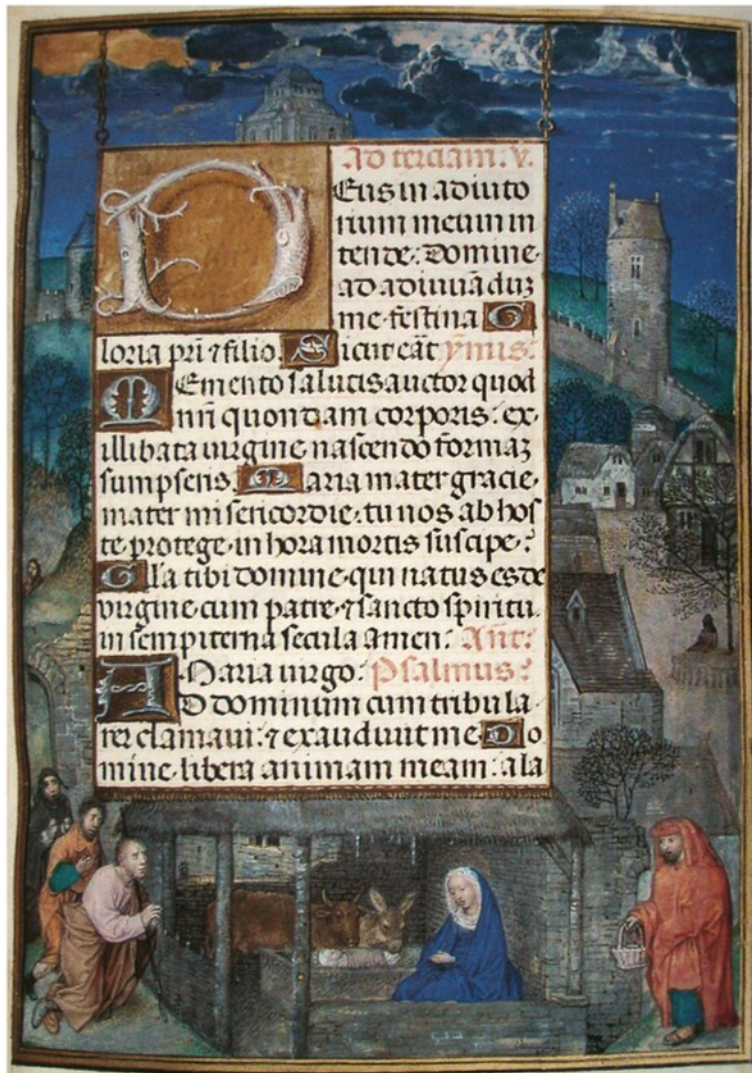 Ad terciam. v̄.
Deus in adiuto
rium meum in
tende. Domine
ad adiuuādūʒ
me festina G
loria pr̄i ⁊ filio. Sicut eāt ymus.
Memento salutis auctor quod
nr̄i quondam corporis. ex
illibata uirgine nascendo formaʒ
sumpseris. Maria mater gracie.
mater misericordie. tu nos ab hos
te protege. in hora mortis suscipe.
Gl'a tibi domine. qui natus es de
virgine. cum patre. ⁊ sancto spiritu.
in sempiterna secula amen. Añt.
Maria uirgo. Psalmus.
AD dominum cum tribula
rer clamaui. ⁊ exaudiuit me Do
mine. libera animam meam. a la